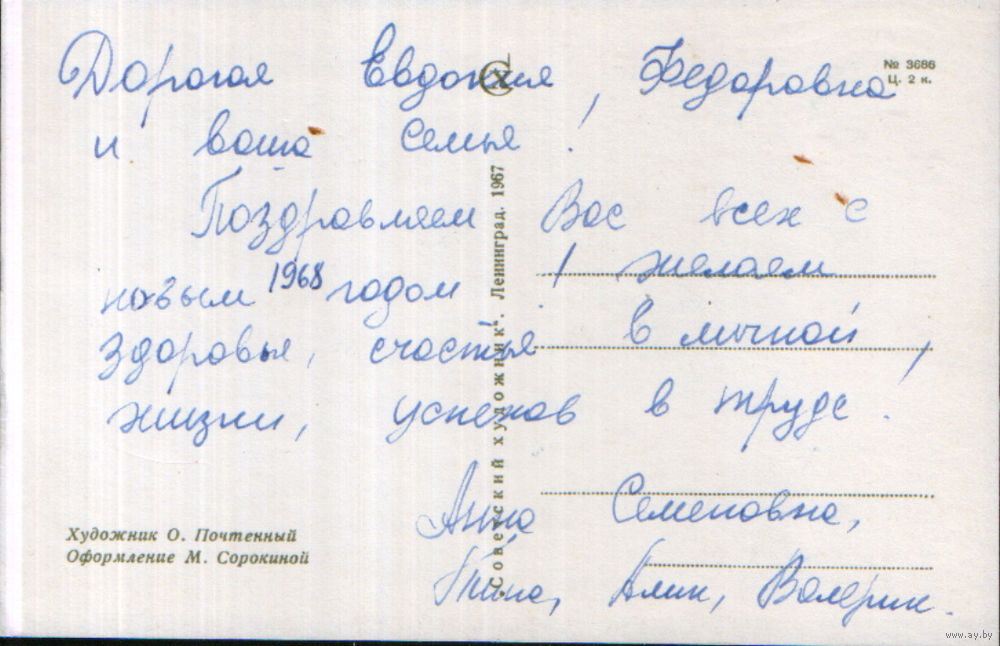 Дорогая Евдокия Федоровна
№ 3686
Ц. 2 к.
и ваша семья!
Поздравляем Вас всех с
новым 1968 годом! желаем
здоровья, счастья в личной
жизни, успехов в труде.
Анна Семеновна,
Нина, Алик, Валерик.
Художник О. Почтенный
Оформление М. Сорокиной
„Советский художник“. Ленинград. 1967
www.ay.by